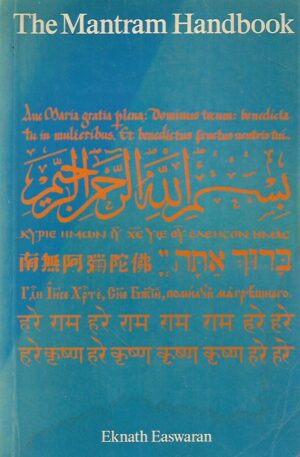 The Mantram Handbook
Ave Maria gratia plena: Dominus tecum: benedicta
tu in mulieribus, Et benedictus fructus ventris tui..
بسم الله الرحمن الرحيم
ΚΥΡΙΕ ΗΜΩΝ ΙΥ ΧΕ ΥΙΕ ΘΥ ΕΛΕΗCΟΝ ΗΜΑC
南無阿彌陀佛 ברוך אתה יי
Гди Іисе Хрте, Сне Бжій, помилуй мя грѣшнаго.
हरे राम हरे राम राम राम हरे हरे
हरे कृष्ण हरे कृष्ण कृष्ण कृष्ण हरे हरे
Eknath Easwaran